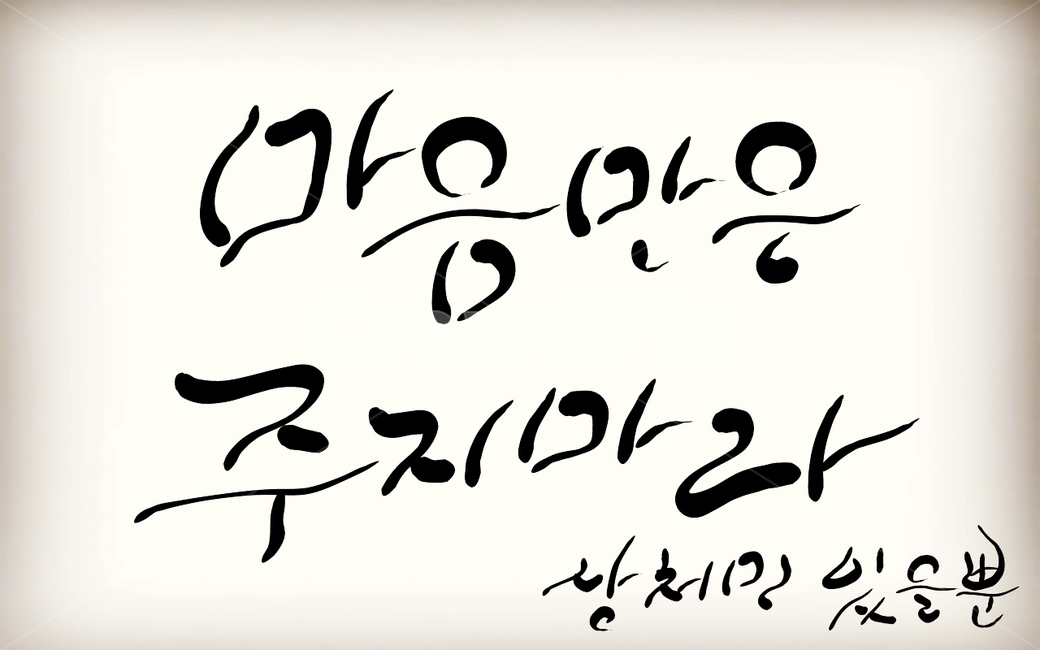 마음만은
주지마라
상처만 있을뿐